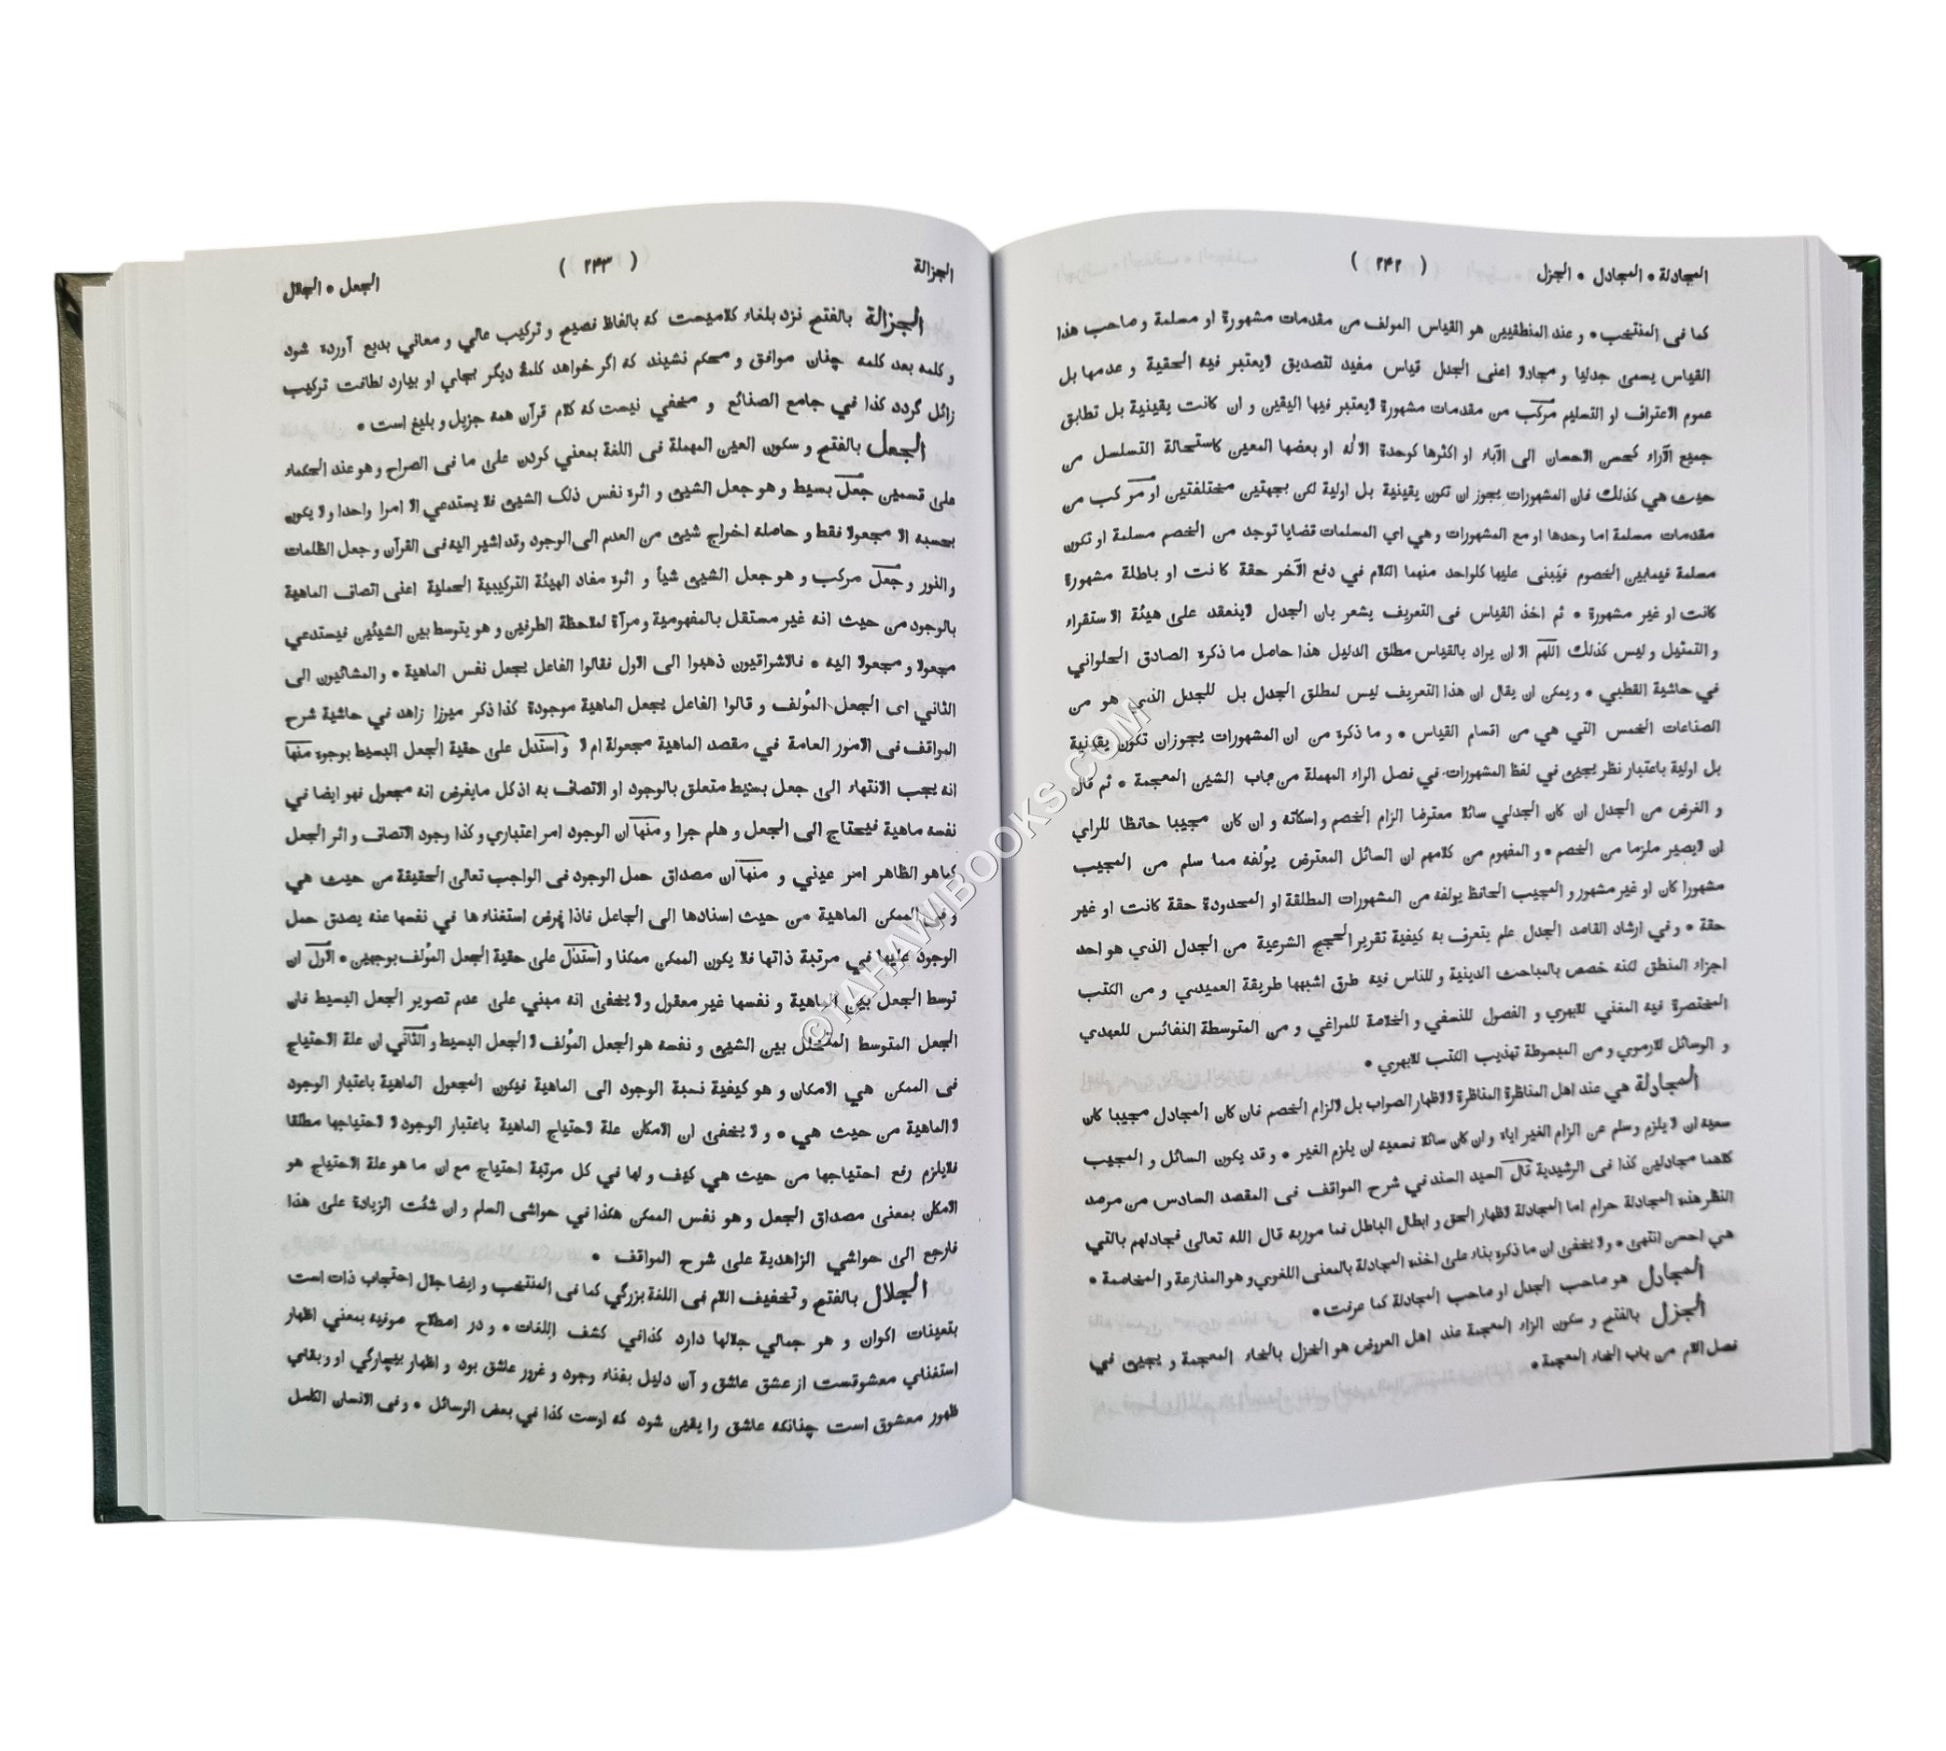 المجادلة • المجادل • الجزل ( ٢٤٢ )
كما فى المنتخب • و عند المنطقيين هو القياس المولف من مقدمات مشهورة او مسلمة و صاحب هذا
القياس يسمى جدليا و مجادلا اعنى الجدل قياس مفيد لتصديق لايعتبر فيه الحقية و عدمها بل
عموم الاعتراف او التسليم مركب من مقدمات مشهورة لايعتبر فيها اليقين و ان كانت يقينية بل تطابق
جميع الآراء كحسن الاحسان الى الآباء او اكثرها كوحدة الاله او بعضها المعين كاستحالة التسلسل من
حيث هي كذلك فان المشهورات يجوز ان تكون يقينية بل اولية لكن بجهتين مختلفتين او مركب من
مقدمات مسلمة اما وحدها او مع المشهورات و هي اي المسلمات قضايا توجد من الخصم مسلمة او تكون
مسلمة فيمابين الخصوم فيبنى عليها كلواحد منهما الكلام في دفع الآخر حقة كانت او باطلة مشهورة
كانت او غير مشهورة • ثم اخذ القياس فى التعريف يشعر بان الجدل لاينعقد على هيئة الاستقراء
و التمثيل و ليس كذلك اللهم الا ان يراد بالقياس مطلق الدليل هذا حاصل ما ذكره الصادق الحلواني
في حاشية القطبي • و يمكن ان يقال ان هذا التعريف ليس لمطلق الجدل بل للجدل الذي هو من
الصناعات الخمس التي هي من اقسام القياس • و ما ذكره من ان المشهورات يجوزان تكون يقينية
بل اولية باعتبار نظر يجيئ في لفظ المشهورات في فصل الراء المهملة من باب الشين المعجمة • ثم قال
و الغرض من الجدل ان كان الجدلي سائلا معترضا الزام الخصم و اسكاته و ان كان مجيبا حافظا للراي
ان لايصير ملزما من الخصم • و المفهوم من كلامهم ان السائل المعترض يؤلفه مما سلم من المجيب
مشهورا كان او غير مشهور و المجيب الحافظ يولفه من المشهورات المطلقة او المحدودة حقة كانت او غير
حقة • و في ارشاد القاصد الجدل علم يتعرف به كيفية تقرير الحجج الشرعية من الجدل الذي هو احد
اجزاء المنطق لكنه خصص بالمباحث الدينية و للناس فيه طرق اشبهها طريقة العميدي و من الكتب
المختصرة فيه المغني للابهري و الفصول للنسفي و الخلاصة للمراغي و من المتوسطة النفائس للعميدي
و الوسائل للارموي و من المبسوطة تهذيب الكتب للابهري •
المجادلة هي عند اهل المناظرة المناظرة لا لاظهار الصواب بل لالزام الخصم فان كان المجادل مجيبا كان
سعيه ان لا يلزم وسلم عن الزام الغير اياه و ان كان سائلا فسعيه ان يلزم الغير • و قد يكون السائل و المجيب
كلاهما مجادلين كذا فى الرشيدية قال السيد السند في شرح المواقف فى المقصد السادس من مرصد
النظر هذه المجادلة حرام اما المجادلة لاظهار الحق و ابطال الباطل فما موربه قال الله تعالى فجادلهم بالتي
هي احسن انتهى • ولا يخفى ان ما ذكره بناء على اخذه المجادلة بالمعنى اللغوي و هو المنازعة و المخاصمة •
المجادل هو صاحب الجدل او صاحب المجادلة كما عرفت •
الجزل بالفتح و سكون الزاء المعجمة عند اهل العروض هو الخزل بالخاء المعجمة و يجيئ في
فصل اللام من باب الخاء المعجمة •
الجزالة ( ٢٤٣ ) الجعل • الجلال
الجزالة بالفتح نزد بلغاء كلاميست كه بالفاظ فصيح و تركيب عالي و معاني بديع آورده شود
و كلمه بعد كلمه چنان موافق و محكم نشيند كه اگر خواهد كلمهٔ ديگر بجاي او بيارد لطافت تركيب
زائل گردد كذا في جامع الصنائع و مخفي نيست كه كلام قرآن همه جزيل و بليغ است •
الجعل بالفتح و سكون العين المهملة فى اللغة بمعني كردن على ما فى الصراح و هو عند الحكماء
على قسمين جعل بسيط و هو جعل الشيئ و اثره نفس ذلك الشيئ فلا يستدعي الا امرا واحدا ولا يكون
بحسبه الا مجعولا فقط و حاصله اخراج شيئ من العدم الى الوجود وقد اشير اليه فى القرآن و جعل الظلمات
والنور و جعل مركب و هو جعل الشيئ شيأ و اثره مفاد الهيئة التركيبية الحملية اعنى اتصاف الماهية
بالوجود من حيث انه غير مستقل بالمفهومية و مرآة لملاحظة الطرفين و هو يتوسط بين الشيئين فيستدعي
مجعولا و مجعولا اليه • فالاشراقيون ذهبوا الى الاول فقالوا الفاعل يجعل نفس الماهية • و المشائيون الى
الثاني اى الجعل المؤلف و قالوا الفاعل يجعل الماهية موجودة كذا ذكر ميرزا زاهد في حاشية شرح
المواقف فى الامور العامة في مقصد الماهية مجعولة ام لا و استدل على حقية الجعل البسيط بوجوه منها
انه يجب الانتهاء الى جعل بسيط متعلق بالوجود او الاتصاف به اذ كل مايفرض انه مجعول فهو ايضا في
نفسه ماهية فيحتاج الى الجعل و هلم جرا و منها ان الوجود امر اعتباري و كذا وجود الاتصاف و اثر الجعل
كماهو الظاهر امر عيني و منها ان مصداق حمل الوجود فى الواجب تعالى الحقيقة من حيث هي
و فى الممكن الماهية من حيث اسنادها الى الجاعل فاذا فرض استغناءها في نفسها عنه يصدق حمل
الوجود عليها في مرتبة ذاتها فلا يكون الممكن ممكنا و استدل على حقية الجعل المؤلف بوجهين • الاول ان
توسط الجعل بين الماهية و نفسها غير معقول ولا يخفى انه مبني على عدم تصوير الجعل البسيط فان
الجعل المتوسط المتخلل بين الشيئ و نفسه هو الجعل المؤلف لا الجعل البسيط و الثاني ان علة الاحتياج
فى الممكن هي الامكان و هو كيفية نسبة الوجود الى الماهية فيكون المجعول الماهية باعتبار الوجود
لا الماهية من حيث هي • و لا يخفى ان الامكان علة لاحتياج الماهية باعتبار الوجود لا لاحتياجها مطلقا
فلايلزم رفع احتياجها من حيث هي كيف و لها في كل مرتبة احتياج مع ان ما هو علة الاحتياج هو
الامكان بمعنى مصداق الجعل و هو نفس الممكن هكذا في حواشى السلم و ان شئت الزيادة على هذا
فارجع الى حواشي الزاهدية على شرح المواقف •
الجلال بالفتح و تخفيف اللام فى اللغة بزرگي كما فى المنتخب و ايضا جلال احتجاب ذات است
بتعينات اكوان و هر جمالي جلالها دارد كذافي كشف اللغات • و در اصطلاح صوفيه بمعني اظهار
استغناي معشوقست از عشق عاشق و آن دليل بفناء وجود و غرور عاشق بود و اظهار بيچارگي او و بقاي
ظهور معشوق است چنانكه عاشق را يقين شود كه اوست كذا في بعض الرسائل • و فى الانسان الكامل
©TAHAWIBOOKS.COM